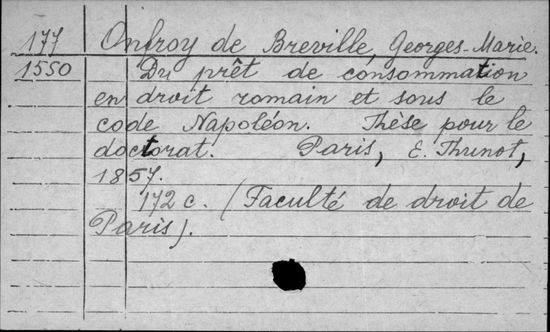 177 Onfroy de Breville, Georges-Marie.
1550 Du prêt de consommation
en droit romain et sous le
code Napoléon. Thèse pour le
doctorat. Paris, E. Thunot,
1857.
172 c. (Faculté de droit de
Paris).